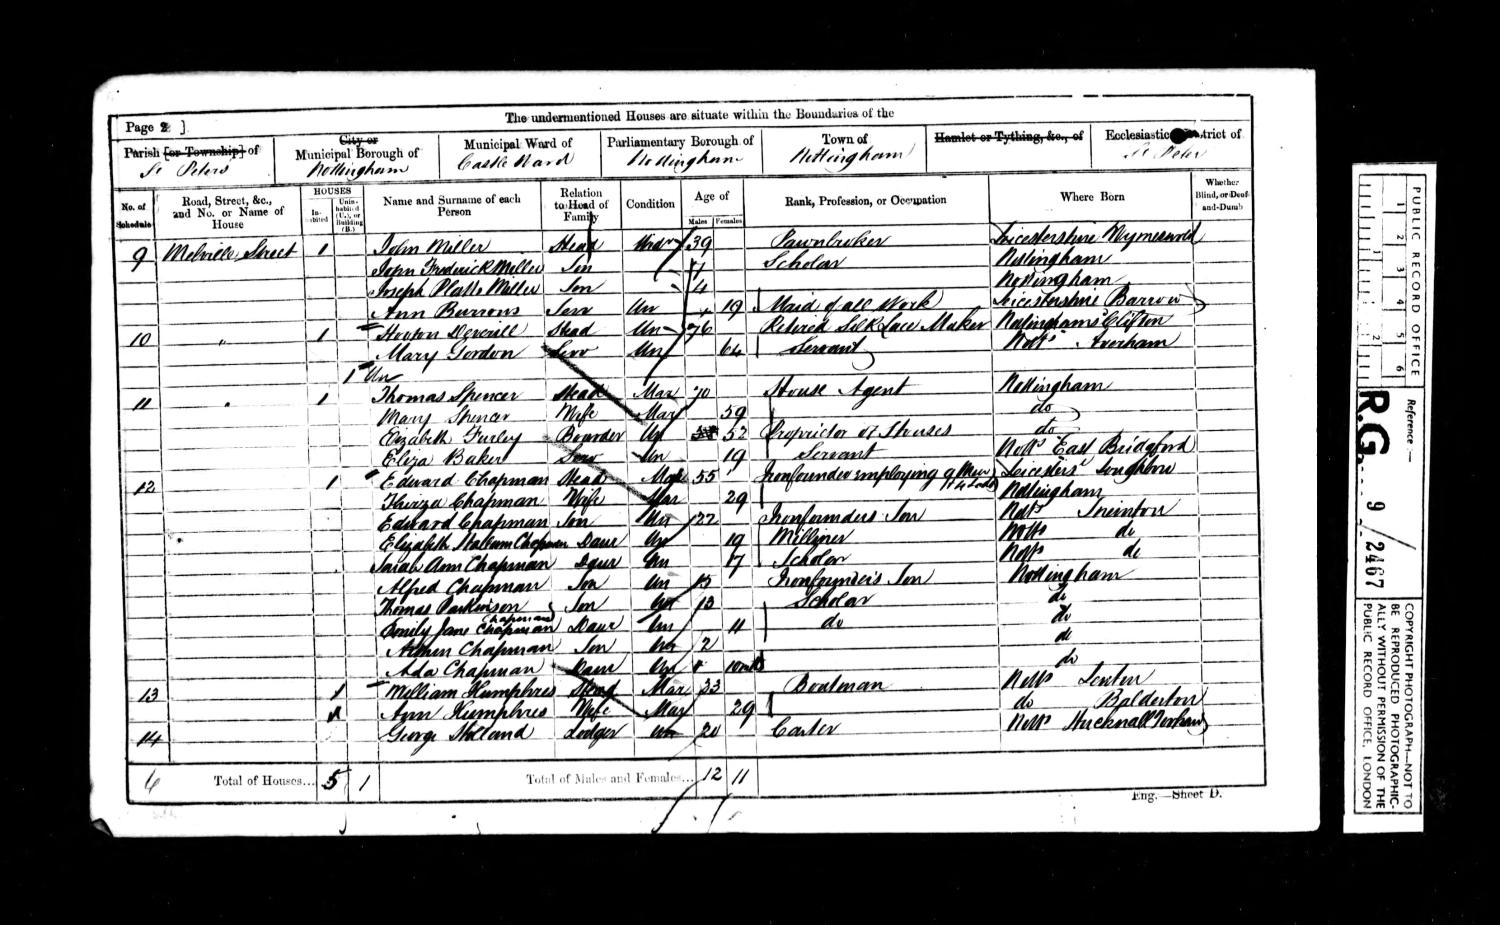 The undermentioned Houses are situate within the Boundaries of the
Page 2 ]
Parish [or Township] of St Peters
City or Municipal Borough of Nottingham
Municipal Ward of Castle Ward
Parliamentary Borough of Nottingham
Town of Nottingham
Hamlet or Tything, &c., of
Ecclesiastic trict of St Peter
No. of Schedule
Road, Street, &c., and No. or Name of House
HOUSES
In-habited
Unin-habited (U.), or Building (B.)
Name and Surname of each Person
Relation to Head of Family
Condition
Age of
Males Females
Rank, Profession, or Occupation
Where Born
Whether Blind, or Deaf-and-Dumb
9 Melville Street 1 John Miller Head 39 Pawnbroker Leicestershire Wymeswold
John Frederick Miller Son 7 Scholar Nottingham
Joseph Platts Miller Son 4 Nottingham
Ann Burrows Serv Un 19 Maid of all Work Leicestershire Barrow
10 " 1 Horton Deverill Head Un 76 Retired Silk Lace Maker Clifton
Mary Gordon Serv Un 64 Servant Notts Averham
1 Un
11 " 1 Thomas Spencer Head Mar 70 House Agent Nottingham
Mary Spencer Wife Mar 59 do
Elizabeth Furley Boarder Un 52 Proprietor of Houses do
Eliza Baker Serv Un 19 Servant Notts East Bridgford
12 1 Edward Chapman Head Mar 55 Ironfounder employing 9 Men & 4 Lads Leicesters Loughboro
Thirza Chapman Wife Mar 29 Nottingham
Edward Chapman Son Un 22 Ironfounders Son Notts Sneinton
Elizabeth Hallam Chapman Daur Un 19 Milliner Notts do
Sarah Ann Chapman Daur Un 17 Scholar Notts do
Alfred Chapman Son Un 15 Ironfounder's Son Nottingham
Thomas Parkinson Chapman Son Un 13 Scholar do
Emily Jane Chapman Daur Un 11 do do
Chapman Son Un 2 do
Ada Chapman Daur Un 10 mths do
13 1 William Humphres Head Mar 33 Boatman Notts Lenton
Ann Humphres Wife Mar 29 do Balderton
14 George Holland Lodger Un 20 Carter Notts Hucknall Torkard
6 Total of Houses... 5 1 Total of Males and Females... 12 11
Eng.—Sheet D.
PUBLIC RECORD OFFICE
1 2 3 4 5 6
1 2
Reference :—
R.G. 9 / 2467
COPYRIGHT PHOTOGRAPH—NOT TO
BE REPRODUCED PHOTOGRAPHIC-
ALLY WITHOUT PERMISSION OF THE
PUBLIC RECORD OFFICE, LONDON